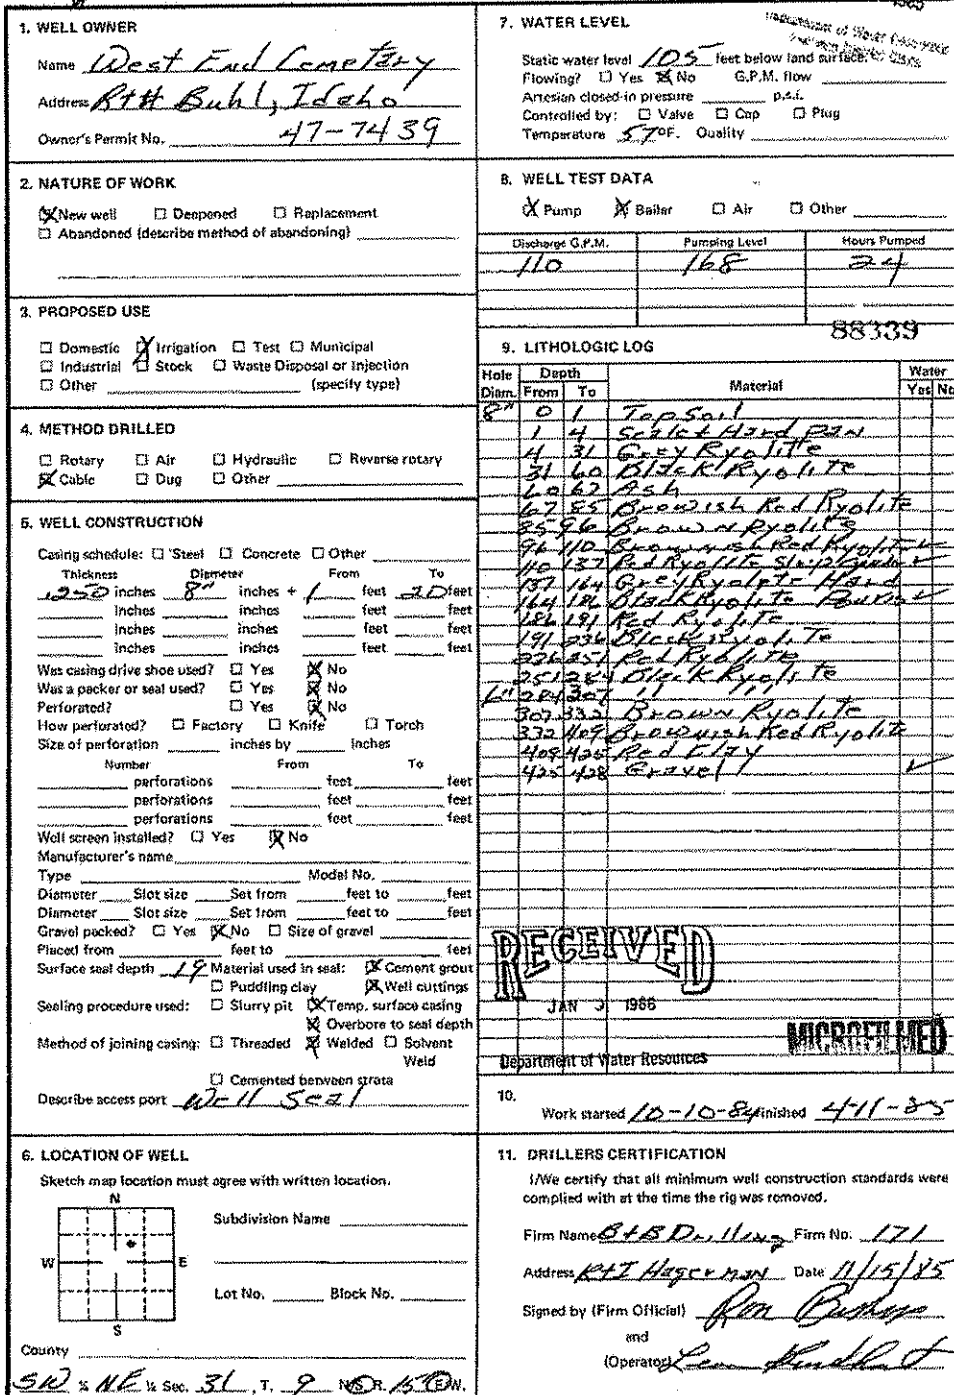 1. WELL OWNER
Name West End Cemetary
Address Rt# Buhl, Idaho
Owner's Permit No. 47-7439
2. NATURE OF WORK
☒ New well ☐ Deepened ☐ Replacement
☐ Abandoned (describe method of abandoning)
3. PROPOSED USE
☐ Domestic ☒ Irrigation ☐ Test ☐ Municipal
☐ Industrial ☐ Stock ☐ Waste Disposal or Injection
☐ Other (specify type)
4. METHOD DRILLED
☐ Rotary ☐ Air ☐ Hydraulic ☐ Reverse rotary
☒ Cable ☐ Dug ☐ Other
5. WELL CONSTRUCTION
Casing schedule: ☐ Steel ☐ Concrete ☐ Other
Thickness Diameter From To
.250 inches 8" inches + 1 feet 20 feet
inches inches feet feet
inches inches feet feet
inches inches feet feet
Was casing drive shoe used? ☐ Yes ☒ No
Was a packer or seal used? ☐ Yes ☒ No
Perforated? ☐ Yes ☒ No
How perforated? ☐ Factory ☐ Knife ☐ Torch
Size of perforation inches by inches
Number From To
perforations feet feet
perforations feet feet
perforations feet feet
Well screen installed? ☐ Yes ☒ No
Manufacturer's name
Type Model No.
Diameter Slot size Set from feet to feet
Diameter Slot size Set from feet to feet
Gravel packed? ☐ Yes ☒ No ☐ Size of gravel
Placed from feet to feet
Surface seal depth 19 Material used in seal: ☒ Cement grout
☐ Puddling clay ☒ Well cuttings
Sealing procedure used: ☐ Slurry pit ☒ Temp. surface casing
☒ Overbore to seal depth
Method of joining casing: ☐ Threaded ☒ Welded ☐ Solvent
Weld
☐ Cemented between strata
Describe access port Well Seal
6. LOCATION OF WELL
Sketch map location must agree with written location.
N
W E
S
Subdivision Name
Lot No. Block No.
County
SW ¼ NE ¼ Sec. 31, T. 9 N/S, R. 15 E/W.
7. WATER LEVEL
Department of Water Resources
Static water level 105 feet below land surface.
Flowing? ☐ Yes ☒ No G.P.M. flow
Artesian closed-in pressure p.s.i.
Controlled by: ☐ Valve ☐ Cap ☐ Plug
Temperature 57 °F. Quality
8. WELL TEST DATA
☒ Pump ☒ Bailer ☐ Air ☐ Other
Discharge G.P.M. Pumping Level Hours Pumped
110 168 24
88339
9. LITHOLOGIC LOG
Hole Depth Water
Diam. From To Material Yes No
8" 0 1 Top Soil
1 4 Scalet Hard Pan
4 31 Grey Ryolite
31 60 Black Ryolite
60 67 Ash
67 85 Browish Red Ryolite
85 96 Brown Ryolite
96 110 Brownish Red Ryolite ✓
110 137 Red Ryolite ✓
137 164 Grey Ryolite Hard
164 186 Black Ryolite ✓
186 191 Red Ryolite
191 226 Black Ryolite
226 251 Red Ryolite
251 284 Black Ryolite
6" 284 307 " "
307 332 Brown Ryolite
332 409 Brownish Red Ryolite
409 425 Red Clay
425 428 Gravel ✓
RECEIVED
JAN 1986
MICROFILMED
Department of Water Resources
10.
Work started 10-10-84 finished 4-11-85
11. DRILLERS CERTIFICATION
I/We certify that all minimum well construction standards were
complied with at the time the rig was removed.
Firm Name B+B Drilling Firm No. 171
Address Rt I Hagerman Date 11/15/85
Signed by (Firm Official) Ron
and
(Operator)